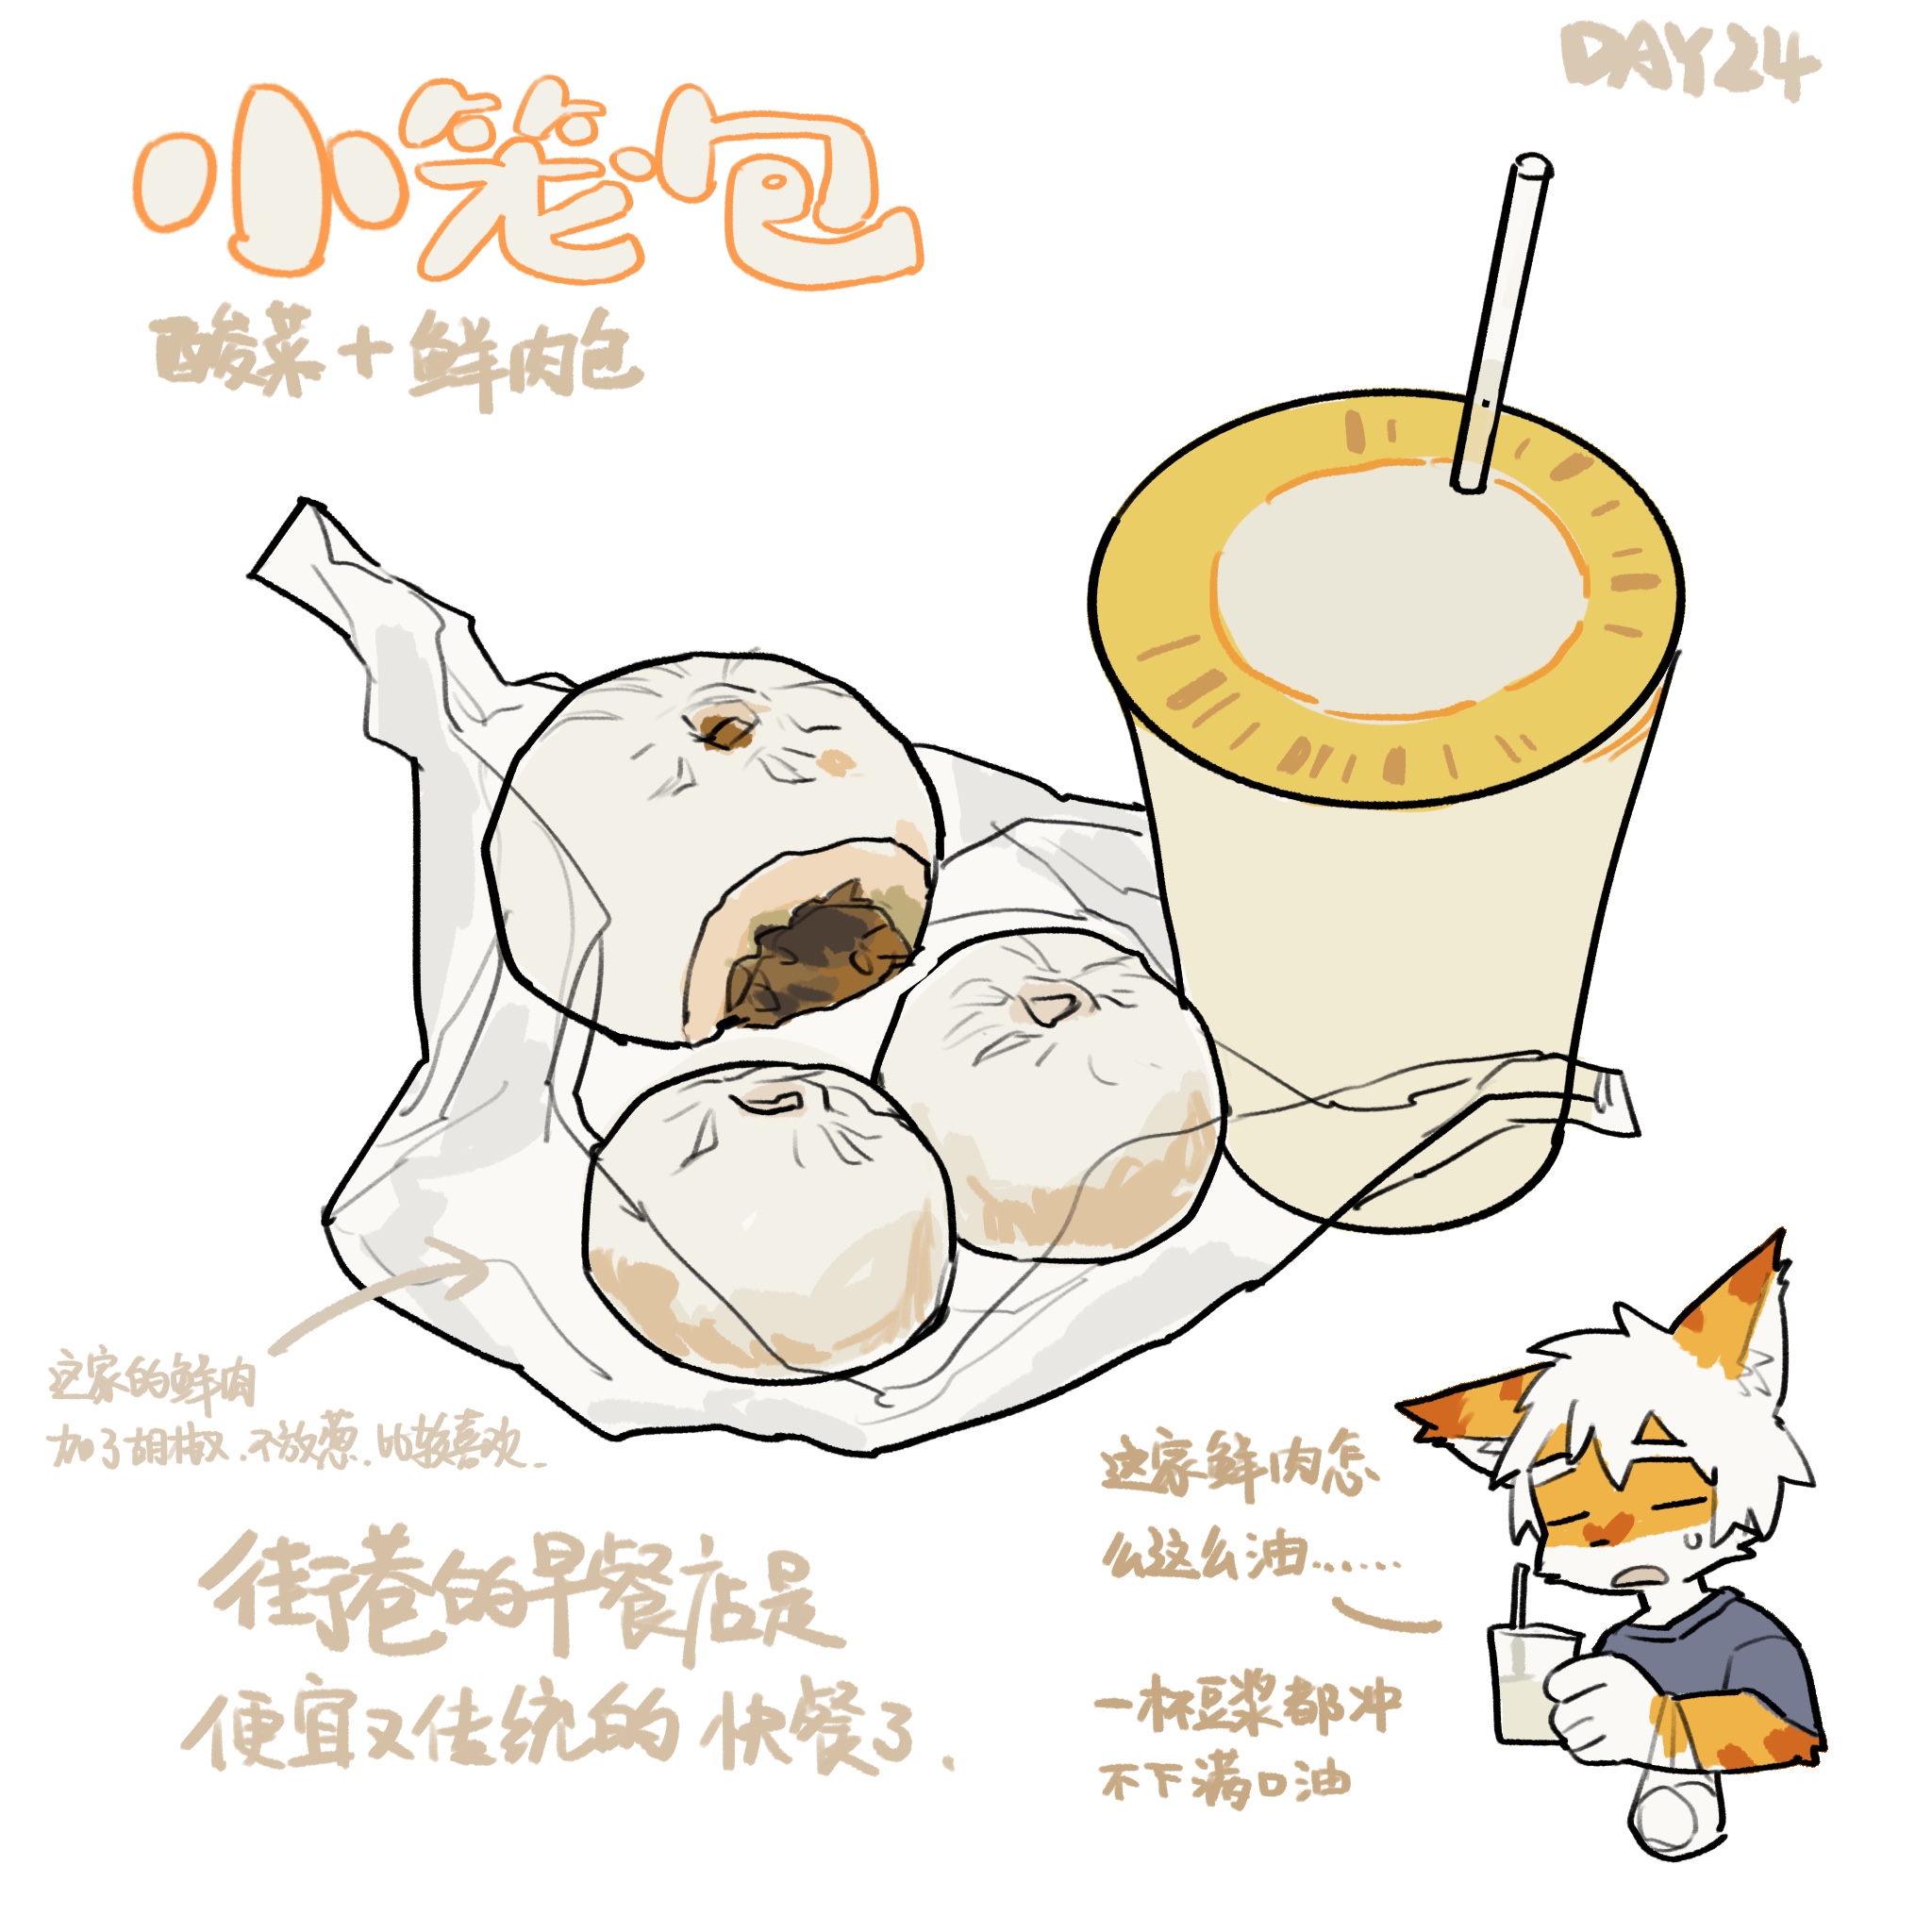 DAY24
小笼包
酸菜+鲜肉包
这家的鲜肉
加了胡椒.不放葱.比较喜欢.
街巷的早餐店是
便宜又传统的快餐了.
这家鲜肉怎
么这么油......
一杯豆浆都冲
不下满口油